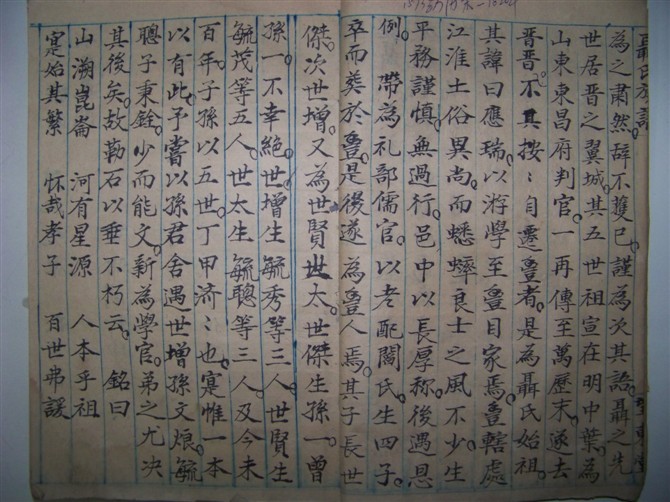 聶氏族譜
為之肅然辞不獲已謹為次其語聶之先
世居晋之翼城其五世祖宣在明中葉為
山東東昌府判官一再傳至萬歷末遂去
晋晋不其按〻自遷壹者是為聶氏始祖
其諱曰應瑞以游學至壹目家焉壹轄處
江淮土俗異尚而蟋蟀良士之風不少生
平務謹慎無過行邑中以長厚称後遇恩
例帶為礼部儒官以老配閻氏生四子
卒而葬於壹是後遂為壹人焉其子長世
傑次世增又為世賢世太世傑生孫一曾
孫一不幸絶世增生毓秀等三人世賢生
毓茂等五人世太生毓聰等三人及今未
百年子孫以五世丁甲济〻也寔惟一本
以有此予嘗以孫君舍遇世增孫文煝毓
聰子東銓少而能文新為學官弟之尤决
其後矣故勒石以垂不朽云 銘曰
山溯崑崙 河有星源 人本乎祖
寔始其繁 怀哉孝子 百世弗諼